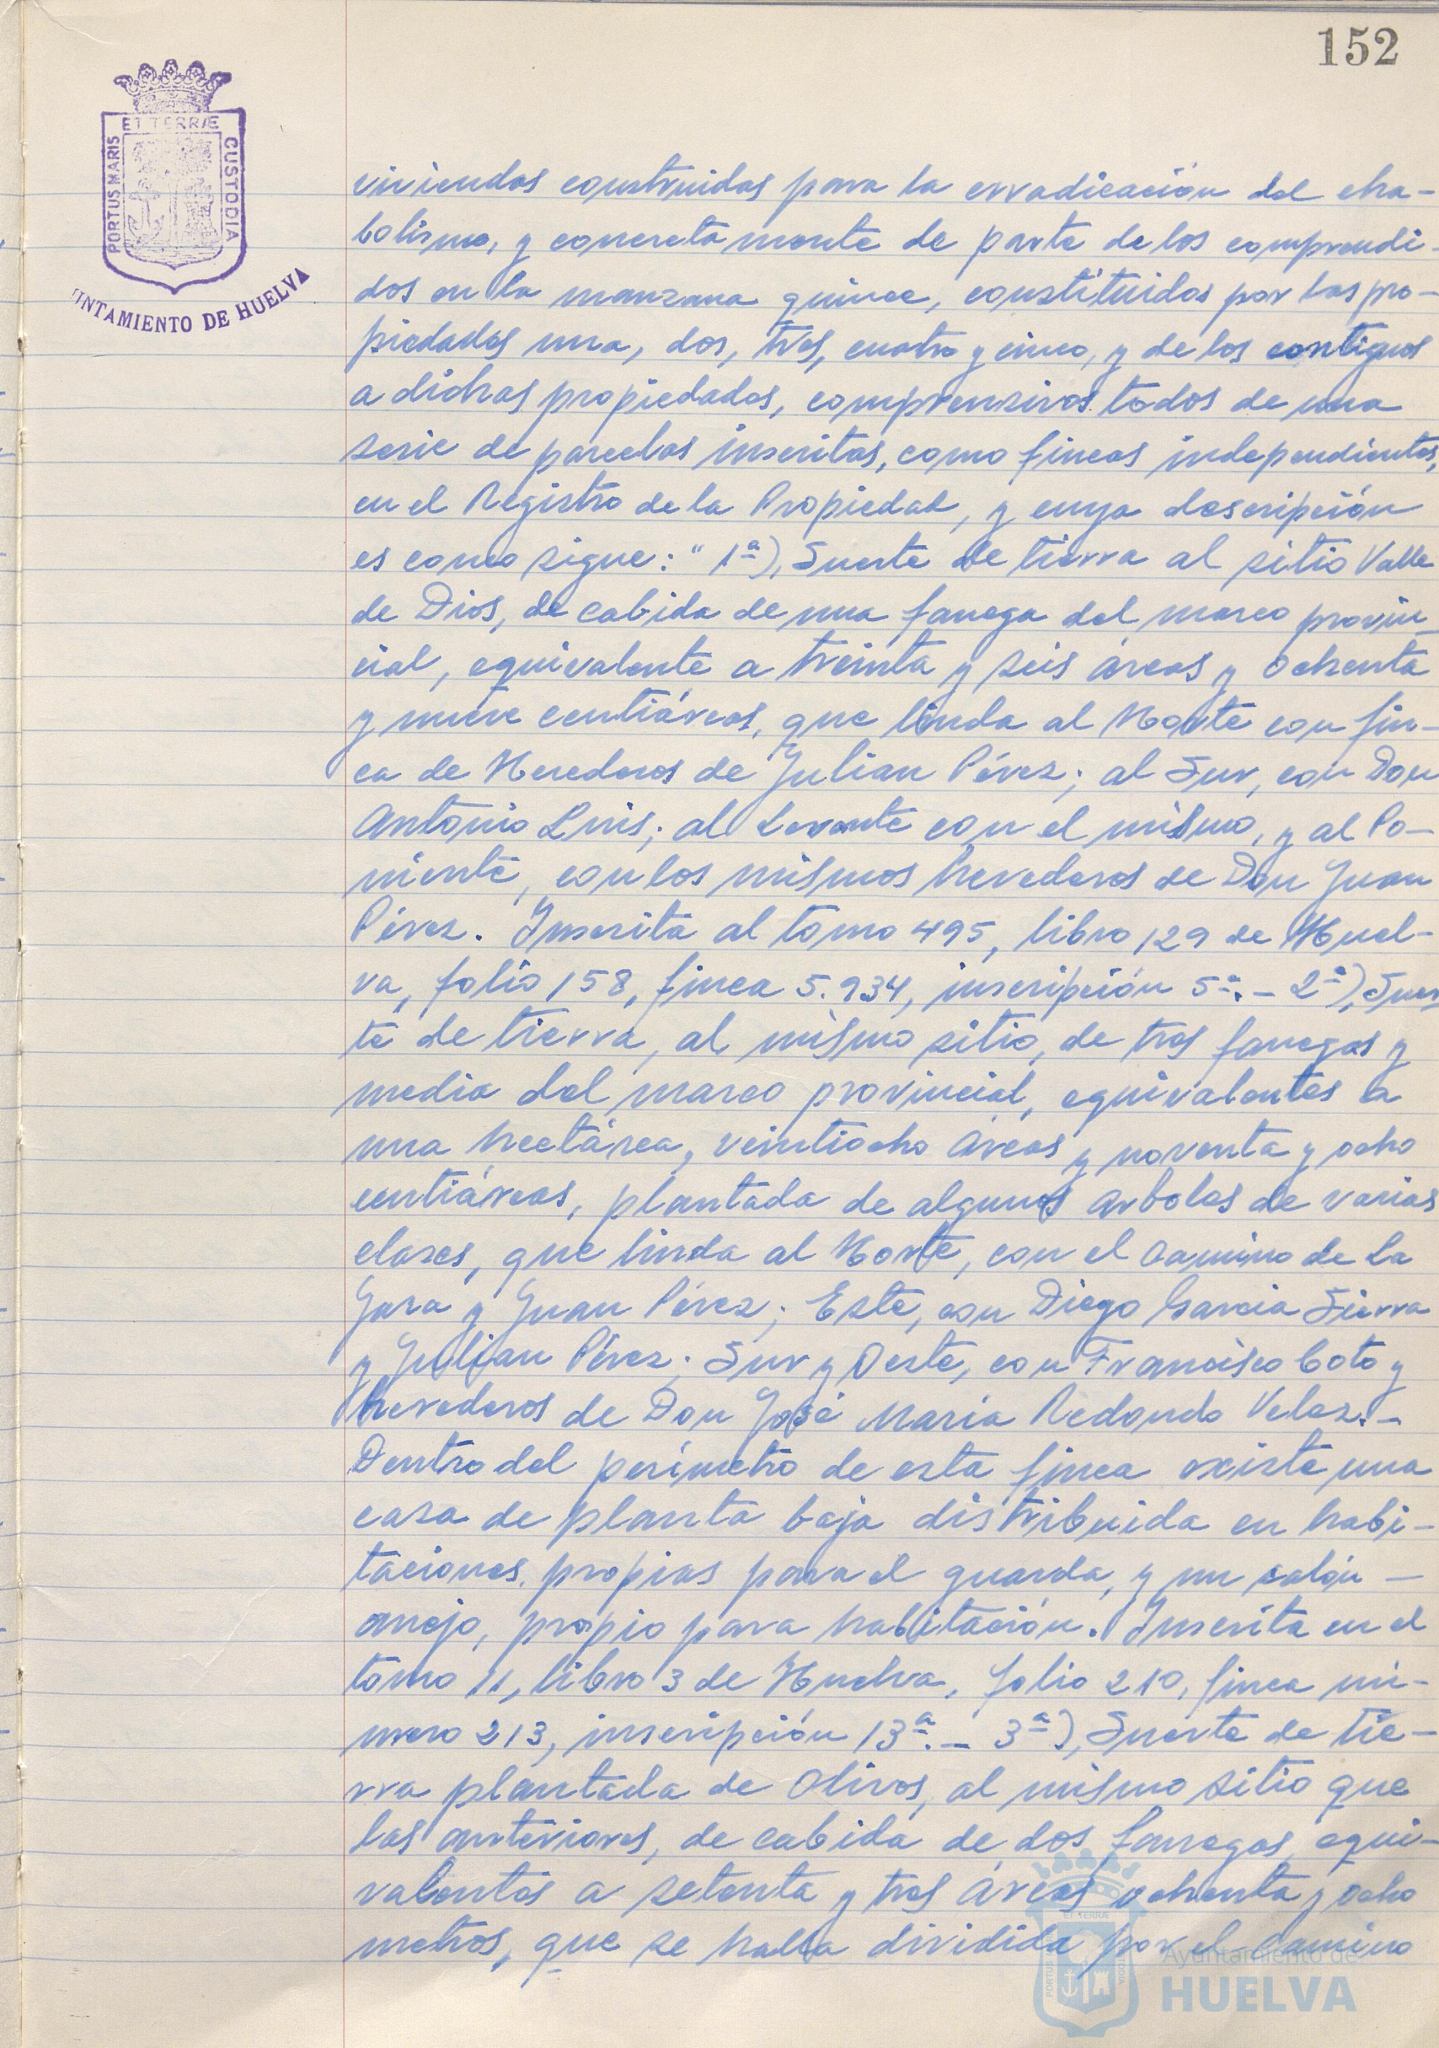 152
ET TERRÆ
PORTUS MARIS
CUSTODIA
UNTAMIENTO DE HUELVA
viviendas construidas para la erradicación del cha-
bolismo, y concretamente de parte de los comprendi-
dos en la manzana quince, constituidos por las pro-
piedades una, dos, tres, cuatro y cinco, y de los contiguos
a dichas propiedades, comprensivos todos de una
serie de parcelas inscritas, como fincas independientes,
en el Registro de la Propiedad, y cuya descripción
es como sigue: " 1ª), Suerte de tierra al sitio Valle
de Dios, de cabida de una fanega del marco provin-
cial, equivalente a treinta y seis áreas y ochenta
y nueve centiáreas, que linda al Norte con fin-
ca de Herederos de Julian Pérez; al Sur, con Don
Antonio Luis; al Levante con el mismo, y al Po-
niente, con los mismos herederos de Don Juan
Pérez. Inscrita al tomo 495, libro 129 de Huel-
va, folio 158, finca 5.934, inscripción 5ª.- 2ª), Suer
te de tierra, al mismo sitio, de tres fanegas y
media del marco provincial, equivalentes a
una hectárea, veintiocho áreas y noventa y ocho
centiáreas, plantada de algunos arboles de varias
clases, que linda al Norte, con el camino de la
Jara y Juan Pérez; Este, con Diego Garcia Sierra
y Julian Pérez; Sur y Oeste, con Francisco Coto y
herederos de Don José Maria Redondo Velez.-
Dentro del perímetro de esta finca existe una
casa de planta baja distribuida en habi-
taciones propias para el guarda, y un salón -
anejo, propio para habitación. Inscrita en el
tomo 11, libro 3 de Huelva, folio 210, finca nú-
mero 213, inscripción 13ª.- 3ª), Suerte de tie-
rra plantada de olivos, al mismo sitio que
las anteriores, de cabida de dos fanegas, equi-
valentes a setenta y tres áreas ochenta y ocho
metros, que se halla dividida por el camino
Ayuntamiento de
HUELVA